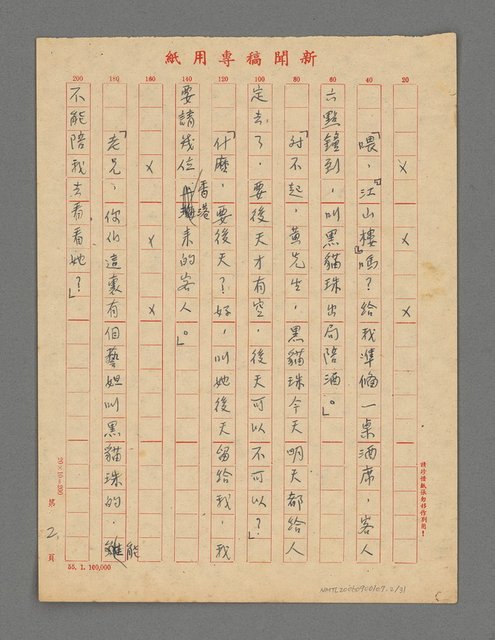 新聞稿專用紙
20
40
60
80
100
120
140
160
180
200
× × ×
「喂,『江山樓』嗎?給我準備一桌酒席,客人
六點鐘到,叫黑貓珠出局陪酒。」
「対不起,黃先生,黑貓珠今天明天都給人
定去了,要後天才有空,後天可以不可以?」
「什麼,要後天?好,叫她後天留給我,我
要請幾位香港來的客人。」
× × ×
「老兄,你们這裏有個藝妲叫黑貓珠的,能
不能陪我去看看她?」
請珍惜紙張勿移作別用!
20×10=200
第 2 頁
55. 1. 100,000
NMTL20060900107. 2/31